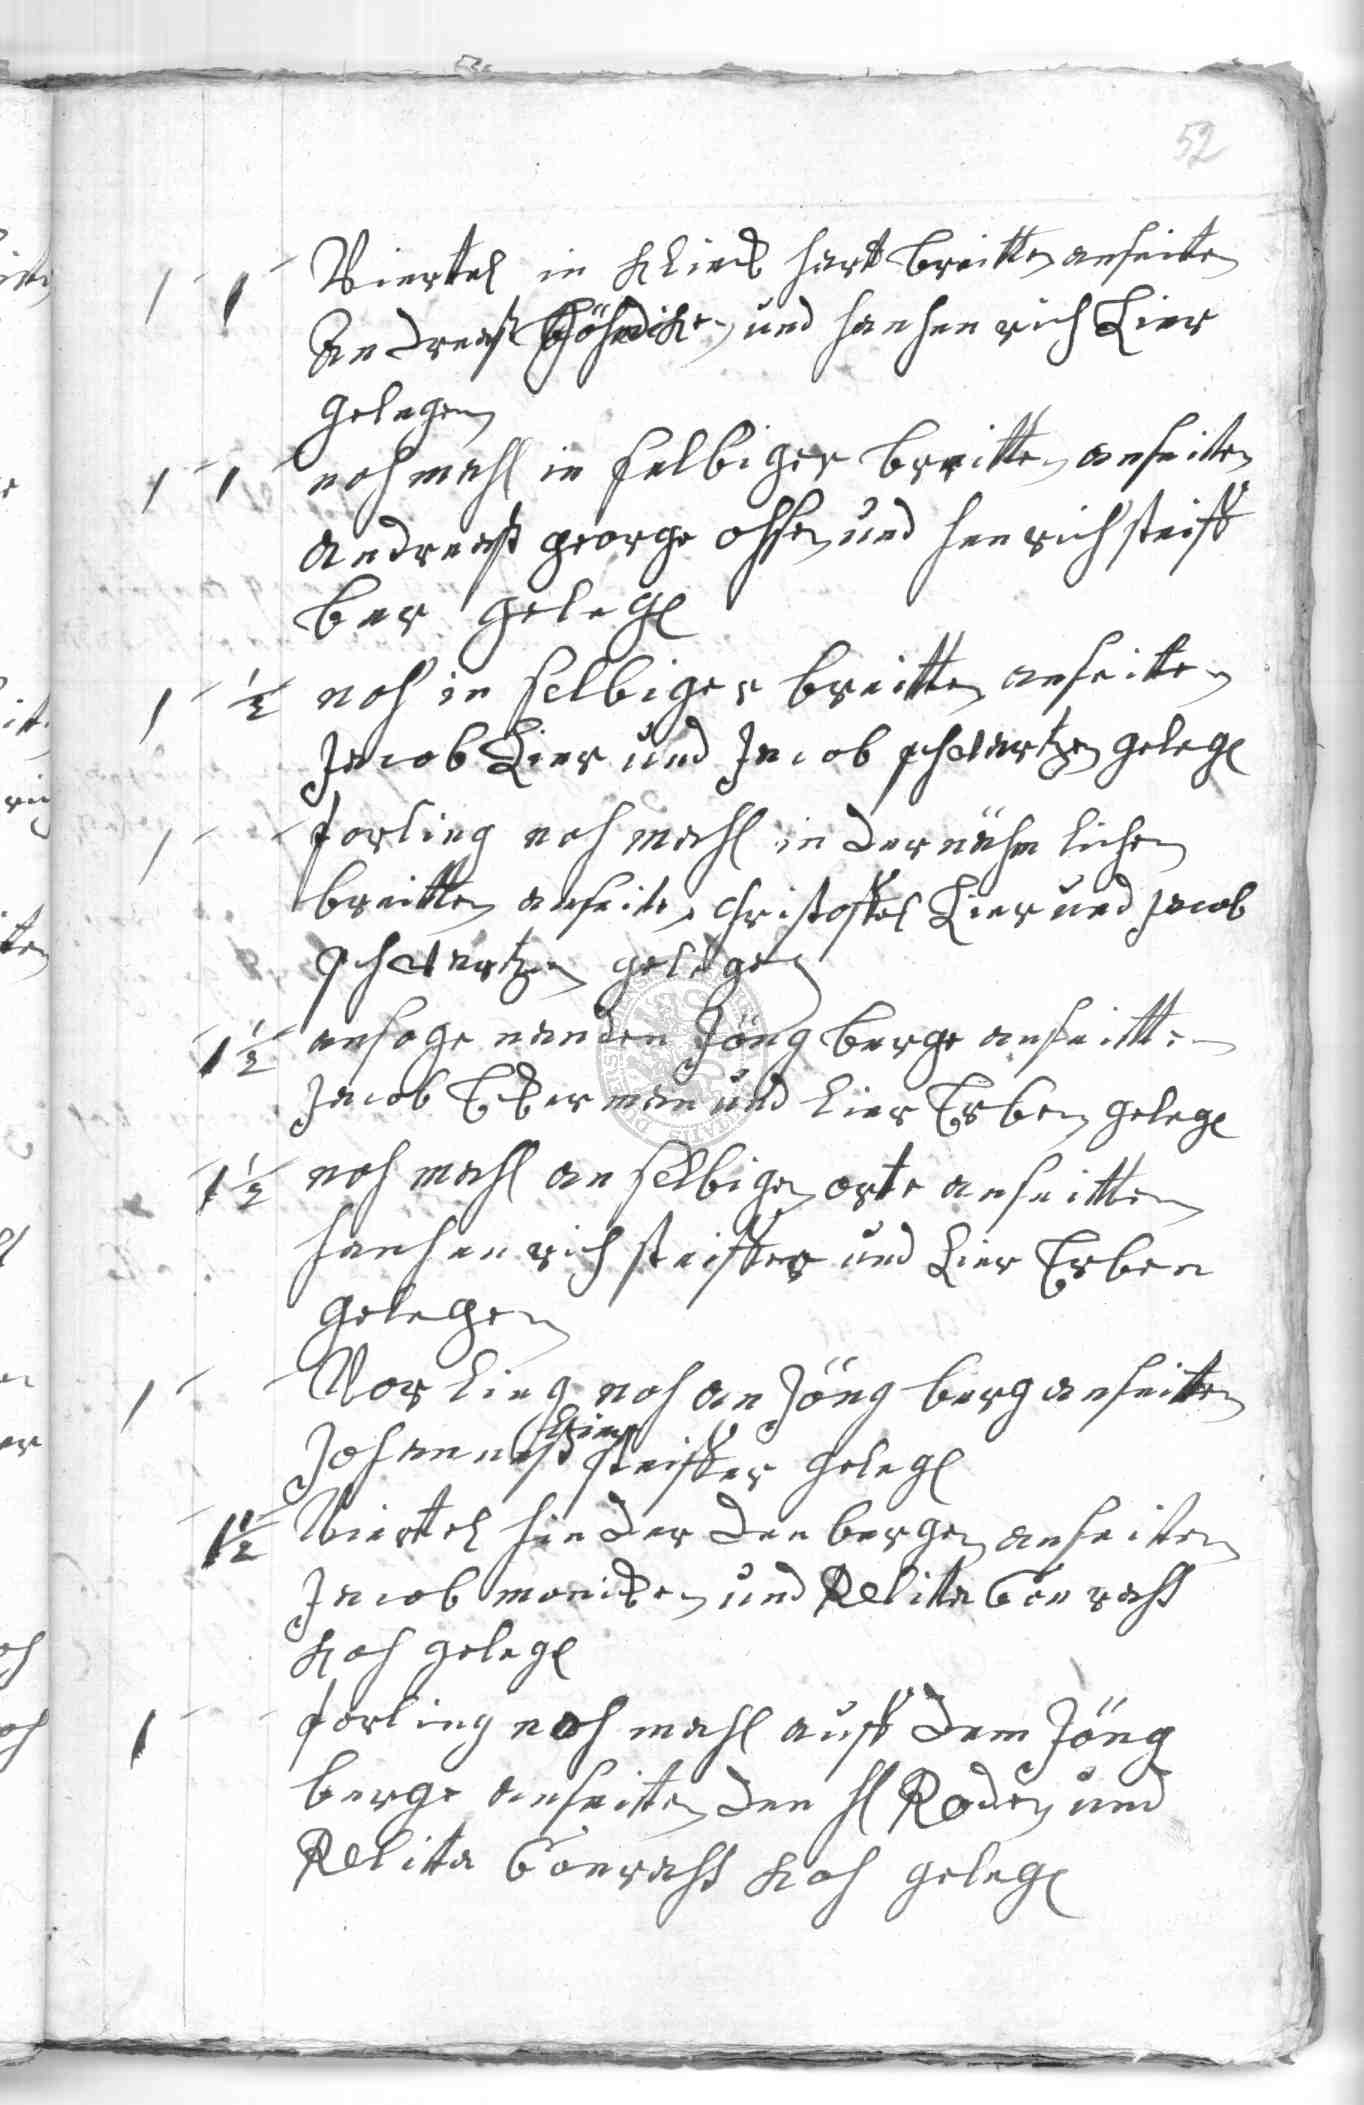 52
1 1 Viertel in Klinck hart breitten anseiten
Andreaß Köhnicke und hanhenrich Lier
gelegen
1 1 noch mahl in selbiger breitten anseiten
andreaß george ohsen und henrich steiff
ber gelegen
1 ½ noch in selbiger breitten anseitten
Jacob Lier und Jacob schwartzen gelegen
1 forling noch mahl in der nähm lichen
breitten anseite Christoffel Lier und Jacob
schwartzen gelegen
1 ½ an soge nanden Jöngberge anseitten
Jacob Eckerman und Lier Erben gelegen
1 ½ noch mahl an selbigen orte anseitten
hanhenrich steiffer und Lier Erben
gelegen
1 Vorling noch an Jöngberg anseitten
Johanneß steiffer gelegen
1 ½ Viertel hinder den bergen anseiten
Jacob moncken und Relitta Conrahs
Koch gelegen
1 forling noch mahl auff dem Jöng
berge anseitten den H Roden und
Relitta Conrahs Koch gelegen